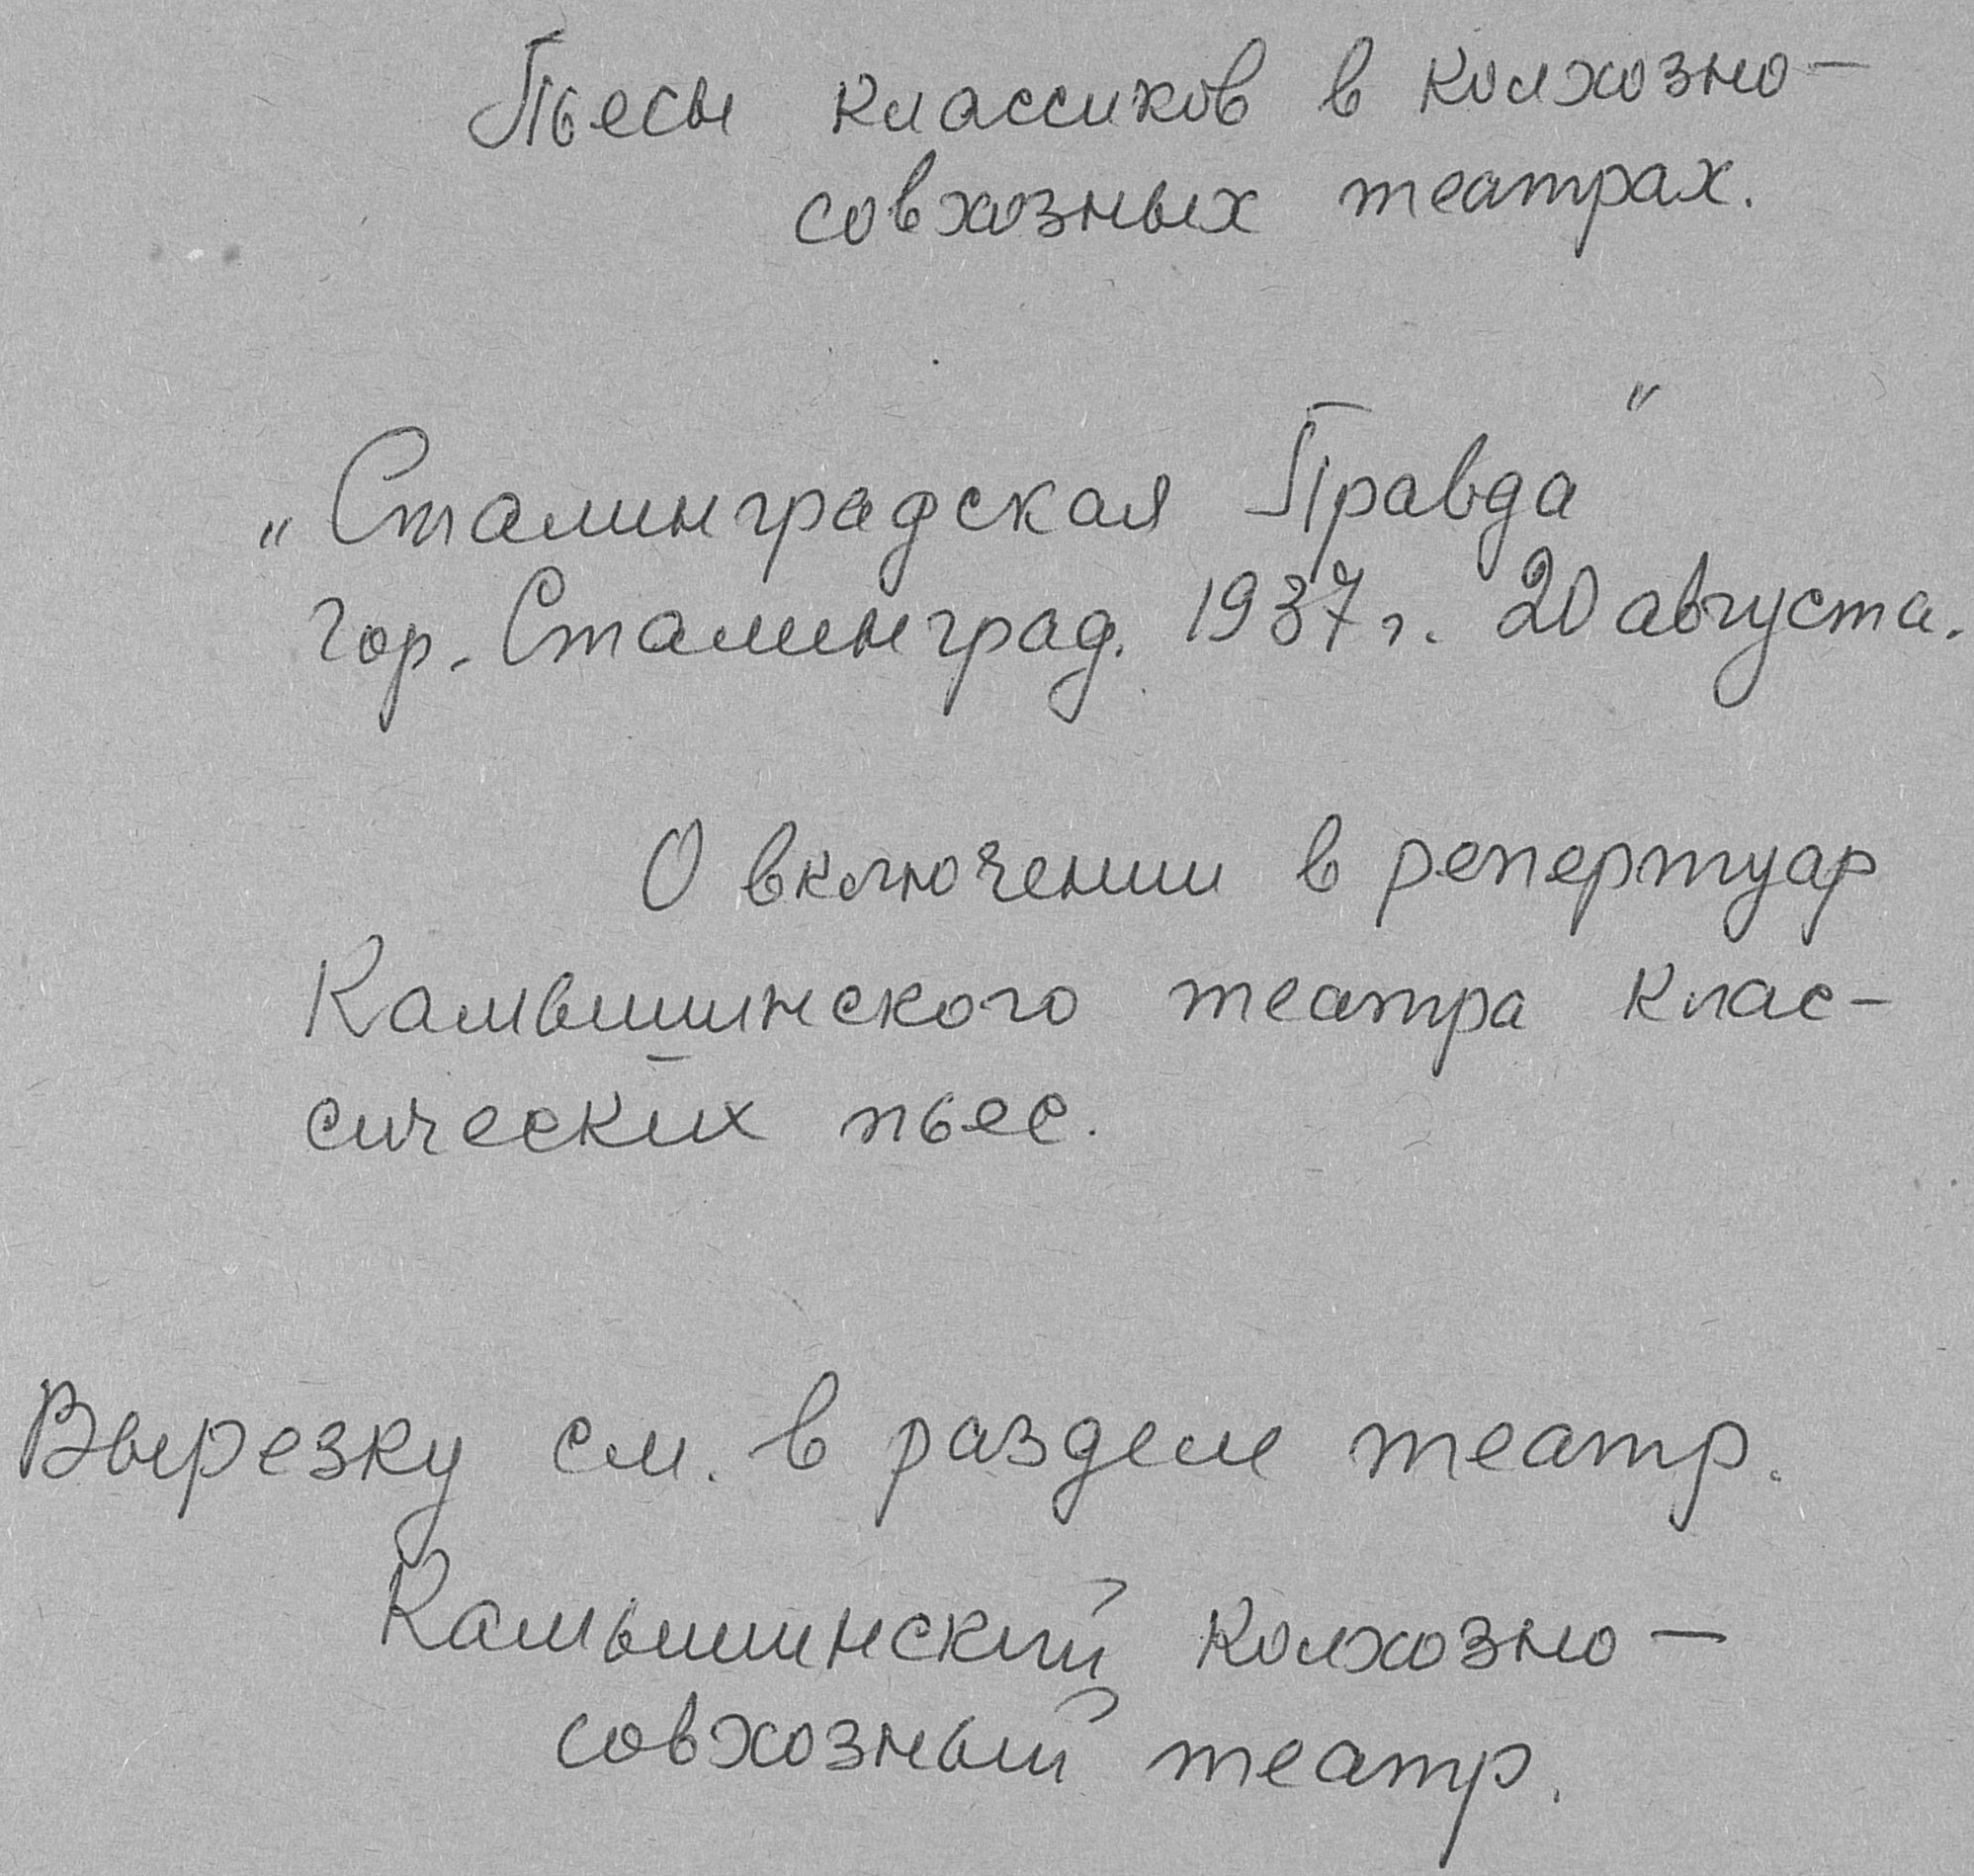 Пьесы классиков в колхозно-
совхозных театрах.
„Сталинградская Правда"
гор. Сталинград. 1937 г. 20 августа.
О включении в репертуар
Камышинского театра клас-
сических пьес.
Вырезку см. в разделе театр.
Камышинский колхозно-
совхозный театр.